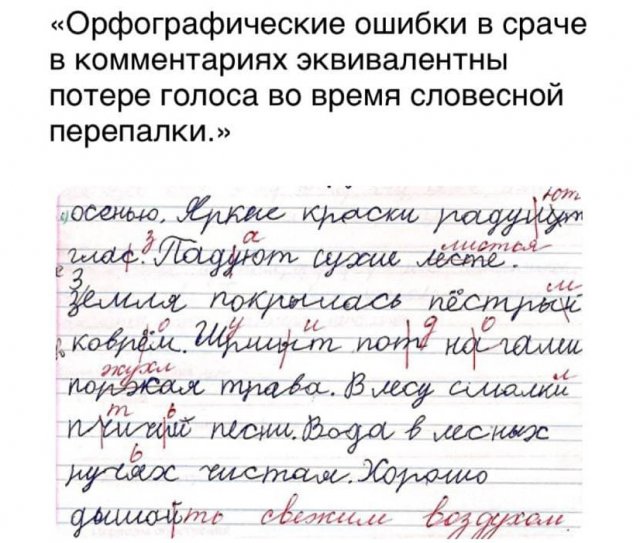 «Орфографические ошибки в сраче
в комментариях эквивалентны
потере голоса во время словесной
перепалки.»
ют
осенью. Яркие краски
з а листья
глас. Падуют сухие лесте.
З м
земля покрылась пёстрый
о у и д о
коврём. пот нагами
жухл л
трава. В лесу
т ь
песни. Вода в лесных
ь
ручях чистая. Хорошо
ть свежим воздухом